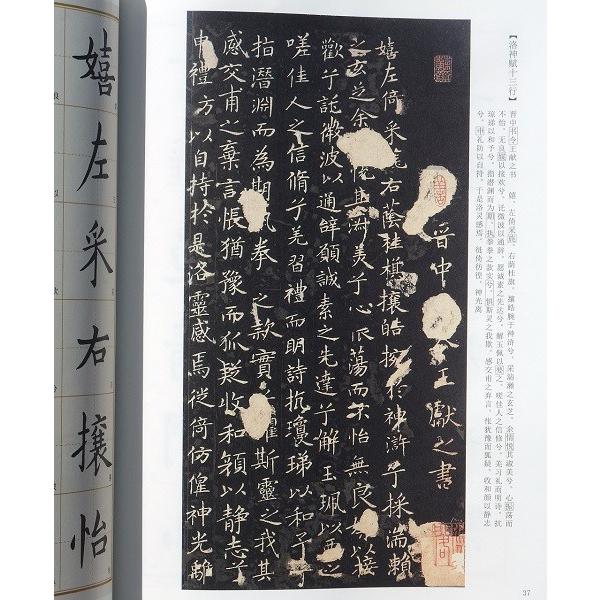 【洛神赋十三行】
晋中书令王献之书　嬉，左倚采旄，右荫桂旗。攘皓腕于神浒兮，采湍濑之玄芝。余情悦其淑美兮，心振荡而
不怡。无良媒以接欢兮，讬微波以通辞。愿诚素之先达兮，解玉佩以要之。嗟佳人之信修兮，羌习礼而明诗。抗
琼珶以和予兮，指潜渊而为期。执拳拳之款实兮，惧斯灵之我欺。感交甫之弃言，怅犹豫而狐疑。收和颜以静志
兮，申礼防以自持。于是洛灵感焉，徙倚仿徨。神光离
晉中令王獻之書
嬉左倚采旄右蔭桂旗攘皓捥於神滸兮採湍瀨
之玄芝余悦其淑美兮心振蕩而不怡無良以接
歡兮託微波以通辭願誠素之先達兮解玉珮以要之
嗟佳人之信脩兮羌習禮而明詩抗瓊珶以和予兮
指潛淵而為期執拳之款實懼斯靈之我其
感交甫之棄言悵猶豫而狐疑收和顏以静志兮
申禮方以自持於是洛靈感焉徙倚仿偟神光離
37
嬉左采右攘怡